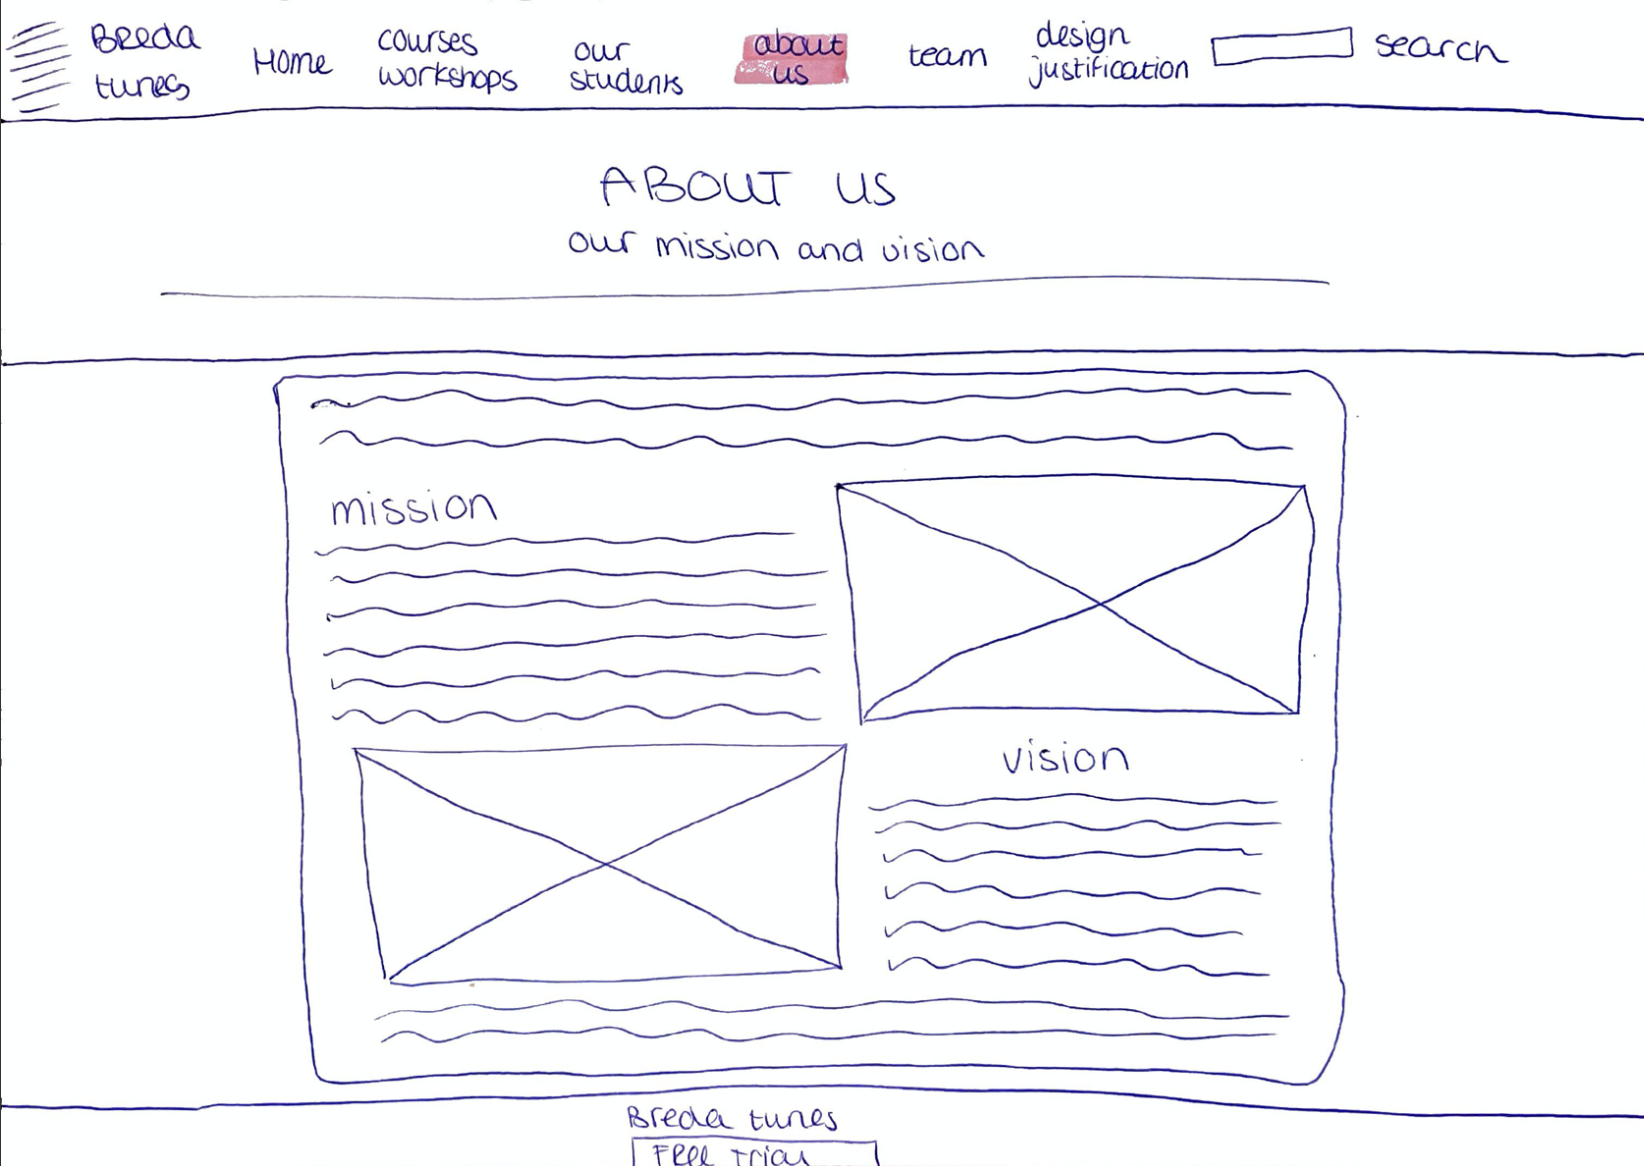 Breda
tunes
Home
courses
workshops
our
students
about
us
team
design
justification
search
ABOUT US
our mission and vision
mission
vision
Breda tunes
Free trial